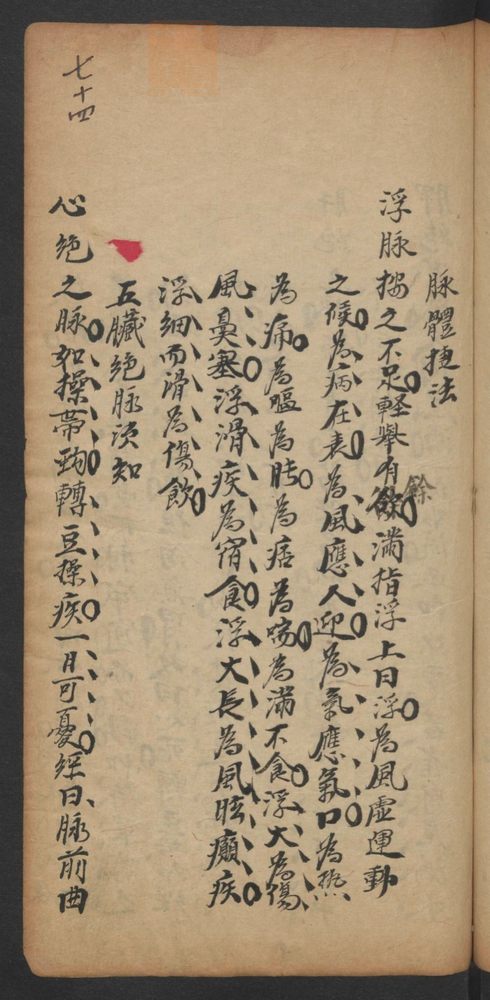 脉體捷法
浮脉按之不足輕舉有餘滿指浮上曰浮為風虛運動
之候為病在表為風應人迎為氣應氣口為熱
為痛為嘔為脹為痞為喘為滿不食浮大為傷
風鼻塞浮滑疾為宿食浮大長為風眩癲疾
浮細而滑為傷飲
五臟絕脉須知
心絕之脉如操帶鉤轉豆操疾一日可憂經曰脉前曲
七十四